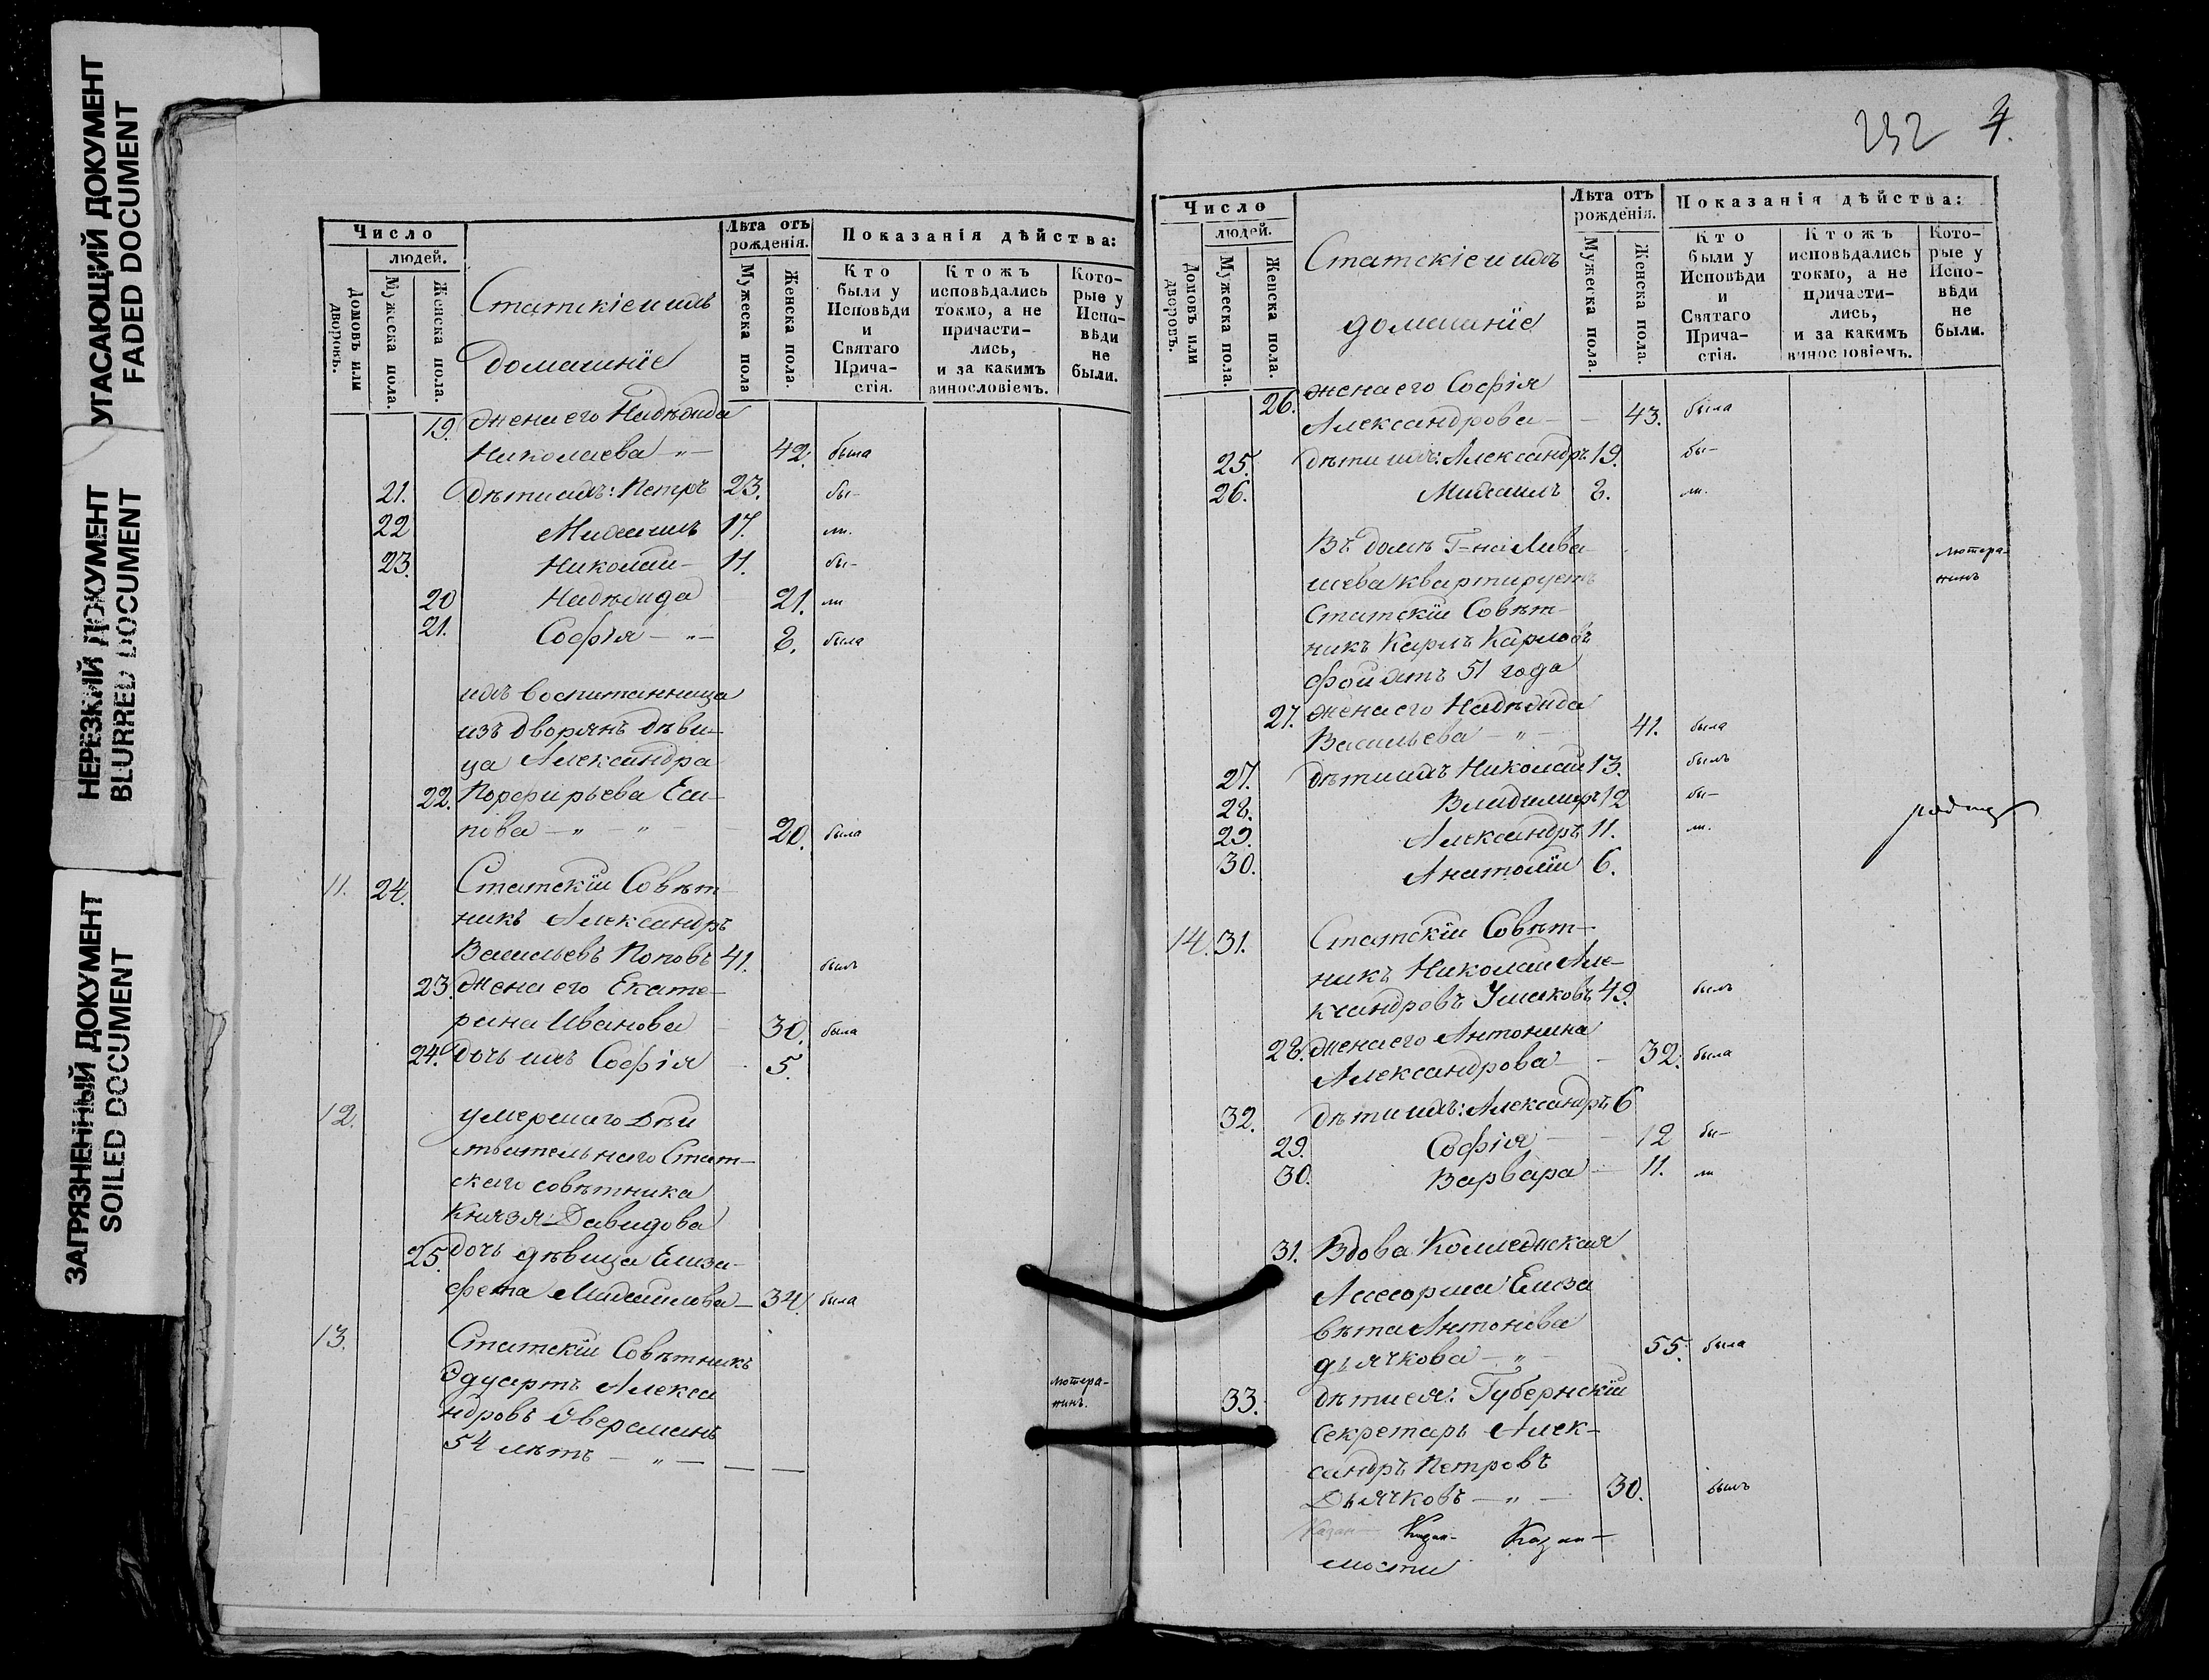 УГАСАЮЩИЙ ДОКУМЕНТ
FADED DOCUMENT
НЕРЕЗКИЙ ДОКУМЕНТ
BLURRED DOCUMENT
ЗАГРЯЗНЕННЫЙ ДОКУМЕНТ
SOILED DOCUMENT
Число
людей.
Домовъ или дворовъ.
Мужеска пола.
Женска пола.
Статскіе и ихъ
домашніе
Лѣта отъ
рожденія.
Мужеска пола
Женска пола.
Показанія дѣйства:
Кто
были у
Исповѣди
и
Святаго
Прича-
стія.
Ктожъ
исповѣдались
токмо, а не
причасти-
лись,
и за какимъ
винословіемъ.
Кото-
рые у
Испо-
вѣди
не
были.
19. жена его Надѣжда
Николаева — „ — 42. была
21. дѣти ихъ: Петръ 23. бы-
22 Михаилъ 17. ли.
23. Николай 11. бы-
20 Надѣжда 21. ли
21. Софія — „ — 8. была
ихъ воспитанница
изъ дворянъ дѣви-
ца Александра
22. Порфирьева Еси-
пова — „ — „ — 20. была
11. 24. Статскій Совѣт-
никъ Александръ
Васильевъ Поповъ 41. былъ
23. жена его Екате-
рина Иванова 30. была
24. дочь ихъ Софія 5.
12. умершаго Дѣй
ствительнаго Стат-
скаго совѣтника
Князя Давидова
25. дочь дѣвица Елиза-
фета Михаилова — 34. была
13. Статскій Совѣтникъ
Эдуартъ Алекса
ндровъ Эверсманъ
54 лѣтъ — „ — — —
лютера-
нинъ.
232 4.
Число
людей.
Домовъ или дворовъ.
Мужеска пола.
Женска пола.
Статскіе и ихъ
домашніе
Лѣта отъ
рожденія.
Мужеска пола
Женска пола.
Показанія дѣйства:
Кто
были у
Исповѣди
и
Святаго
Прича-
стія.
Ктожъ
исповѣдались
токмо, а не
причасти-
лись,
и за какимъ
винословіемъ.
Кото-
рые у
Испо-
вѣди
не
были.
26. жена его Софія
Александрова — 43. была
25. дѣти ихъ: Александръ 19. бы-
26. Михаилъ 8. ли.
Въ домѣ Г-на Лива-
шева квартируетъ
лютера-
нинъ
Статскій Совѣт-
никъ Карлъ Карловъ
Фойхтъ 51 года
27. жена его Надѣжда
Васильева — „ — 41. была
27. дѣти ихъ Николай 13. былъ
28. Владимиръ 12 бы-
29. Александръ 11. ли.
30. Анатолій 6.
14. 31. Статскій Совѣт-
никъ Николай Але-
ксандровъ Ушаковъ 49. былъ
28. жена его Антонина
Александрова — 32. была
32. дѣти ихъ: Александръ 6
29. Софія 12 бы-
30. Варвара 11. ли
31. Вдова Коллежская
Ассесорша Елиза
вѣта Антонова
Дьячкова — „ — 55. была
33. дѣти ея: Губернскій
Секретарь Алек-
сандръ Петровъ
Дьячковъ — „ — 30. былъ
Казан- Казан- Казан-